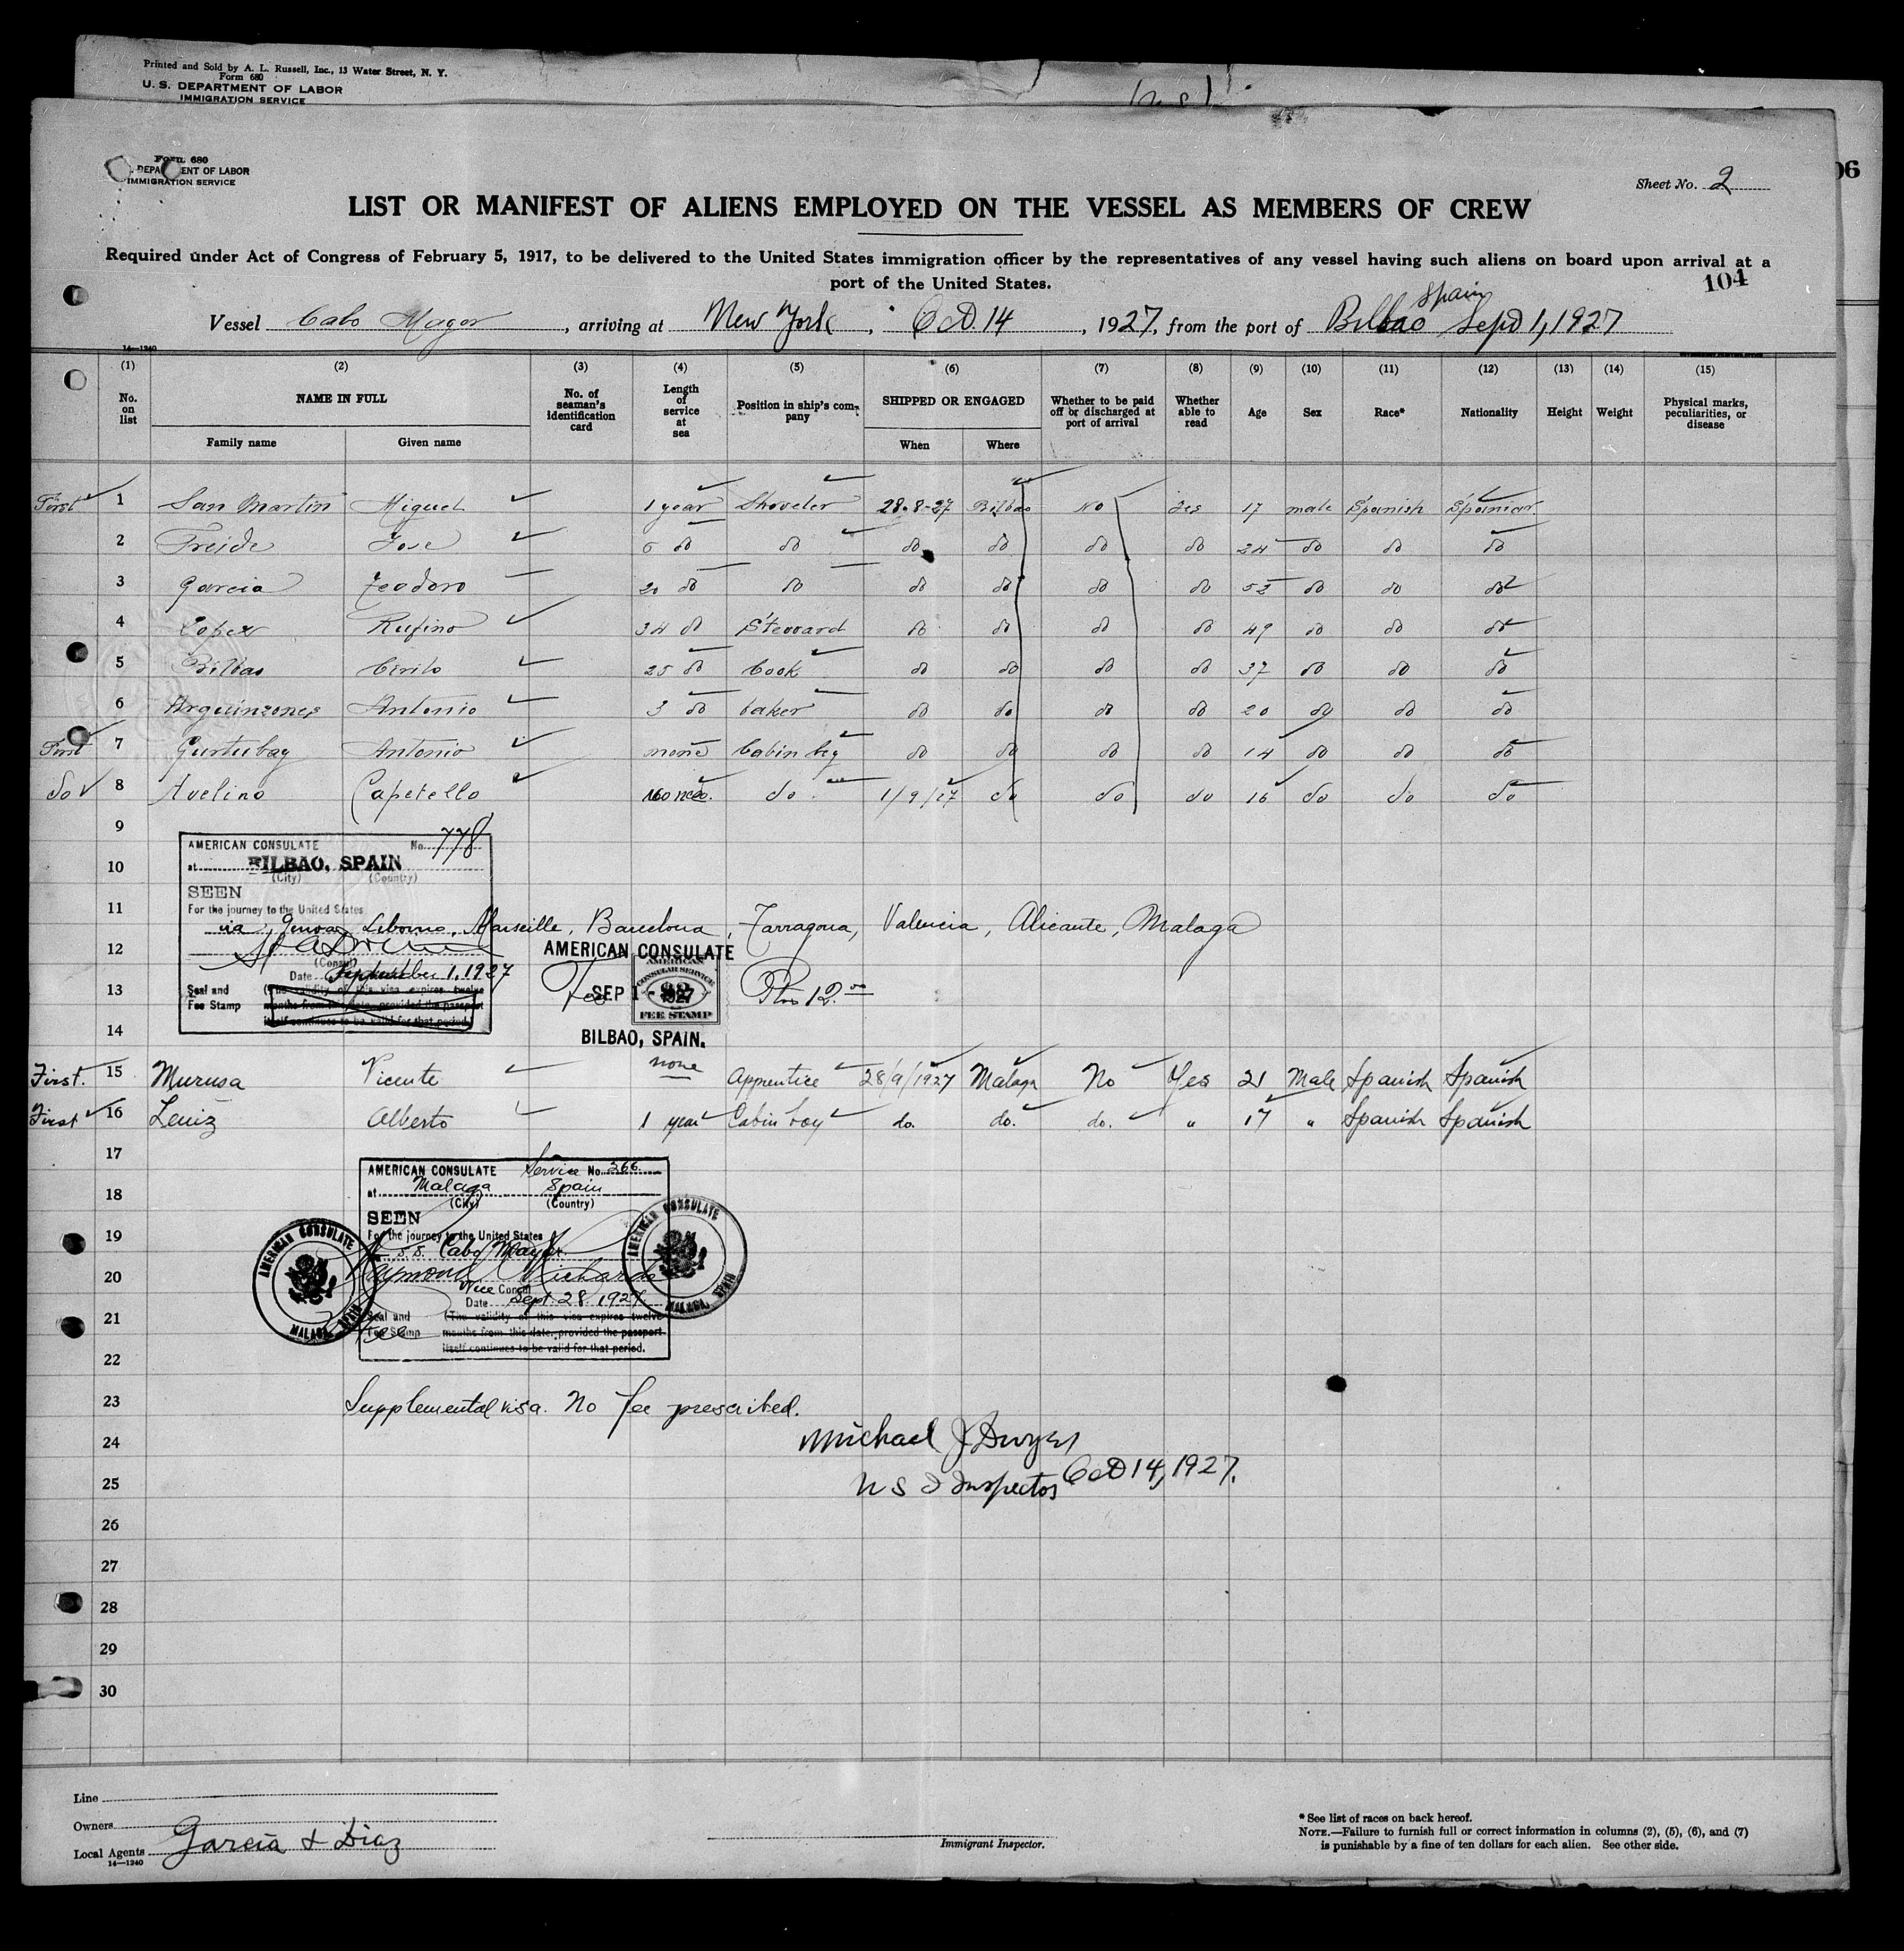 Printed and Sold by A. L. Russell, Inc., 13 Water Street, N. Y.
Form 680
U. S. DEPARTMENT OF LABOR
IMMIGRATION SERVICE
06
Form 680
DEPARTMENT OF LABOR
IMMIGRATION SERVICE
Sheet No. 2
LIST OR MANIFEST OF ALIENS EMPLOYED ON THE VESSEL AS MEMBERS OF CREW
Required under Act of Congress of February 5, 1917, to be delivered to the United States immigration officer by the representatives of any vessel having such aliens on board upon arrival at a
port of the United States.
104
Vessel Cabo Mayor, arriving at New York, Oct. 14, 1927, from the port of Bilbao Spain Sept 1, 1927
14—1240
(1) (2) (3) (4) (5) (6) (7) (8) (9) (10) (11) (12) (13) (14) (15)
No. on list NAME IN FULL No. of seaman's identification card Length of service at sea Position in ship's company SHIPPED OR ENGAGED Whether to be paid off or discharged at port of arrival Whether able to read Age Sex Race* Nationality Height Weight Physical marks, peculiarities, or disease
Family name Given name When Where
First 1 San Martin Miguel 1 year Shoveler 28-8-27 Bilbao No Yes 17 male Spanish Spaniar
2 Freide Jose 6 do do do do do do 34 do do do
3 Garcia Teodoro 20 do do do do do do 53 do do do
4 Lopez Rufino 34 do Steward do do do do 49 do do do
5 Bilbao Cirilo 25 do Cook do do do do 37 do do do
6 Arguinzones Antonio 3 do baker do do do do 20 do do do
First 7 Gurtubay Antonio none Cabin boy do do do do 14 do do do
do 8 Avelino Capetello do 1/9/27 do do do 16 do do do
9
10
11
12
13
14
AMERICAN CONSULATE No. 778
at BILBAO, SPAIN
(City) (Country)
SEEN
For the journey to the United States
via Genoa, Liborno, Marseille, Barcelona, Tarragona, Valencia, Alicante, Malaga
(Consul)
Date September 1, 1927
Seal and Fee Stamp (The validity of this visa expires twelve
months from this date, provided the passport
itself continues to be valid for that period.)
AMERICAN CONSULATE
SEP 1 - 1927
AMERICAN CONSULAR SERVICE
FEE STAMP
BILBAO, SPAIN.
First. 15 Murusa Vicente none Apprentice 28/9/1927 Malaga No Yes 21 Male Spanish Spanish
First 16 Leniz Alberto 1 year Cabin boy do. do. do. " 17 " Spanish Spanish
17
18
19
20
21
22
AMERICAN CONSULATE Service No. 366
at Malaga Spain
(City) (Country)
SEEN
For the journey to the United States
S.S. Cabo Mayor
Raymond Richards
Vice Consul
Date Sept. 28. 1927
Seal and Fee Stamp (The validity of this visa expires twelve
months from this date, provided the passport
itself continues to be valid for that period.
AMERICAN CONSULATE MALAGA, SPAIN
AMERICAN CONSULATE MALAGA, SPAIN
23 Supplemental visa. No fee prescribed.
24 Michael J Dwyer
25 U S I Inspector Oct 14, 1927.
26
27
28
29
30
Line
Owners
Local Agents Garcia & Diaz
14—1240
Immigrant Inspector.
* See list of races on back hereof.
NOTE.—Failure to furnish full or correct information in columns (2), (5), (6), and (7)
is punishable by a fine of ten dollars for each alien. See other side.